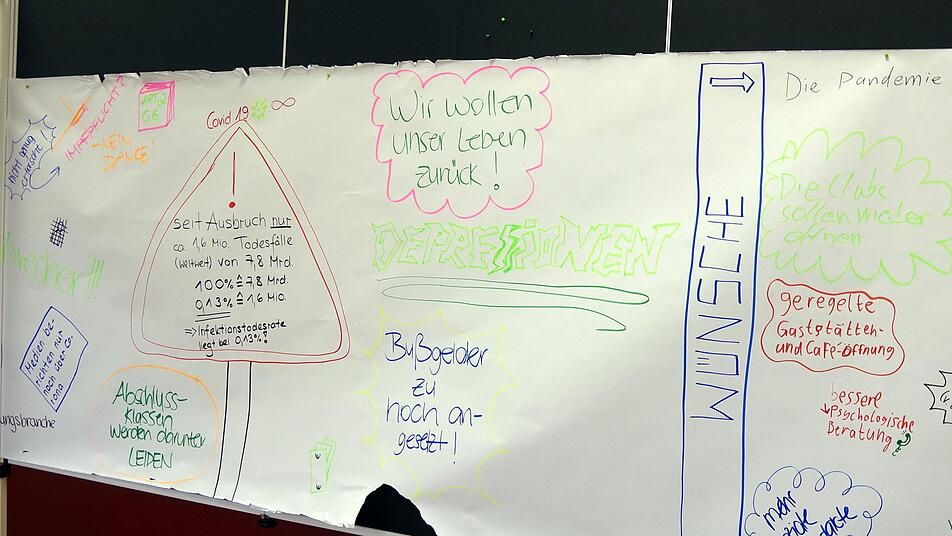 nicht genug
IMPFPFLICHT?
- NEIN
DANKE!
Covid 19 ∞
!
seit Ausbruch nur
ca. 1,6 Mio. Todesfälle
(weltweit) von 7,8 Mrd.
100% ≙ 7,8 Mrd.
0,13% ≙ 1,6 Mio.
⇒ Infektionstodesrate
liegt bei 0,13%!
brecher!!!
Medien be-
richten nur
noch über Co-
rona
ungsbranche
Abschluss-
klassen
werden darunter
LEIDEN
Wir wollen
unser Leben
zurück!
DEPRESSIONEN
Bußgelder
zu
hoch an-
gesetzt!
WÜNSCHE
Die Pandemie
Die Clubs
sollen wieder
öffnen
geregelte
Gaststätten-
und Café-öffnung
bessere
psychologische
Beratung
mehr